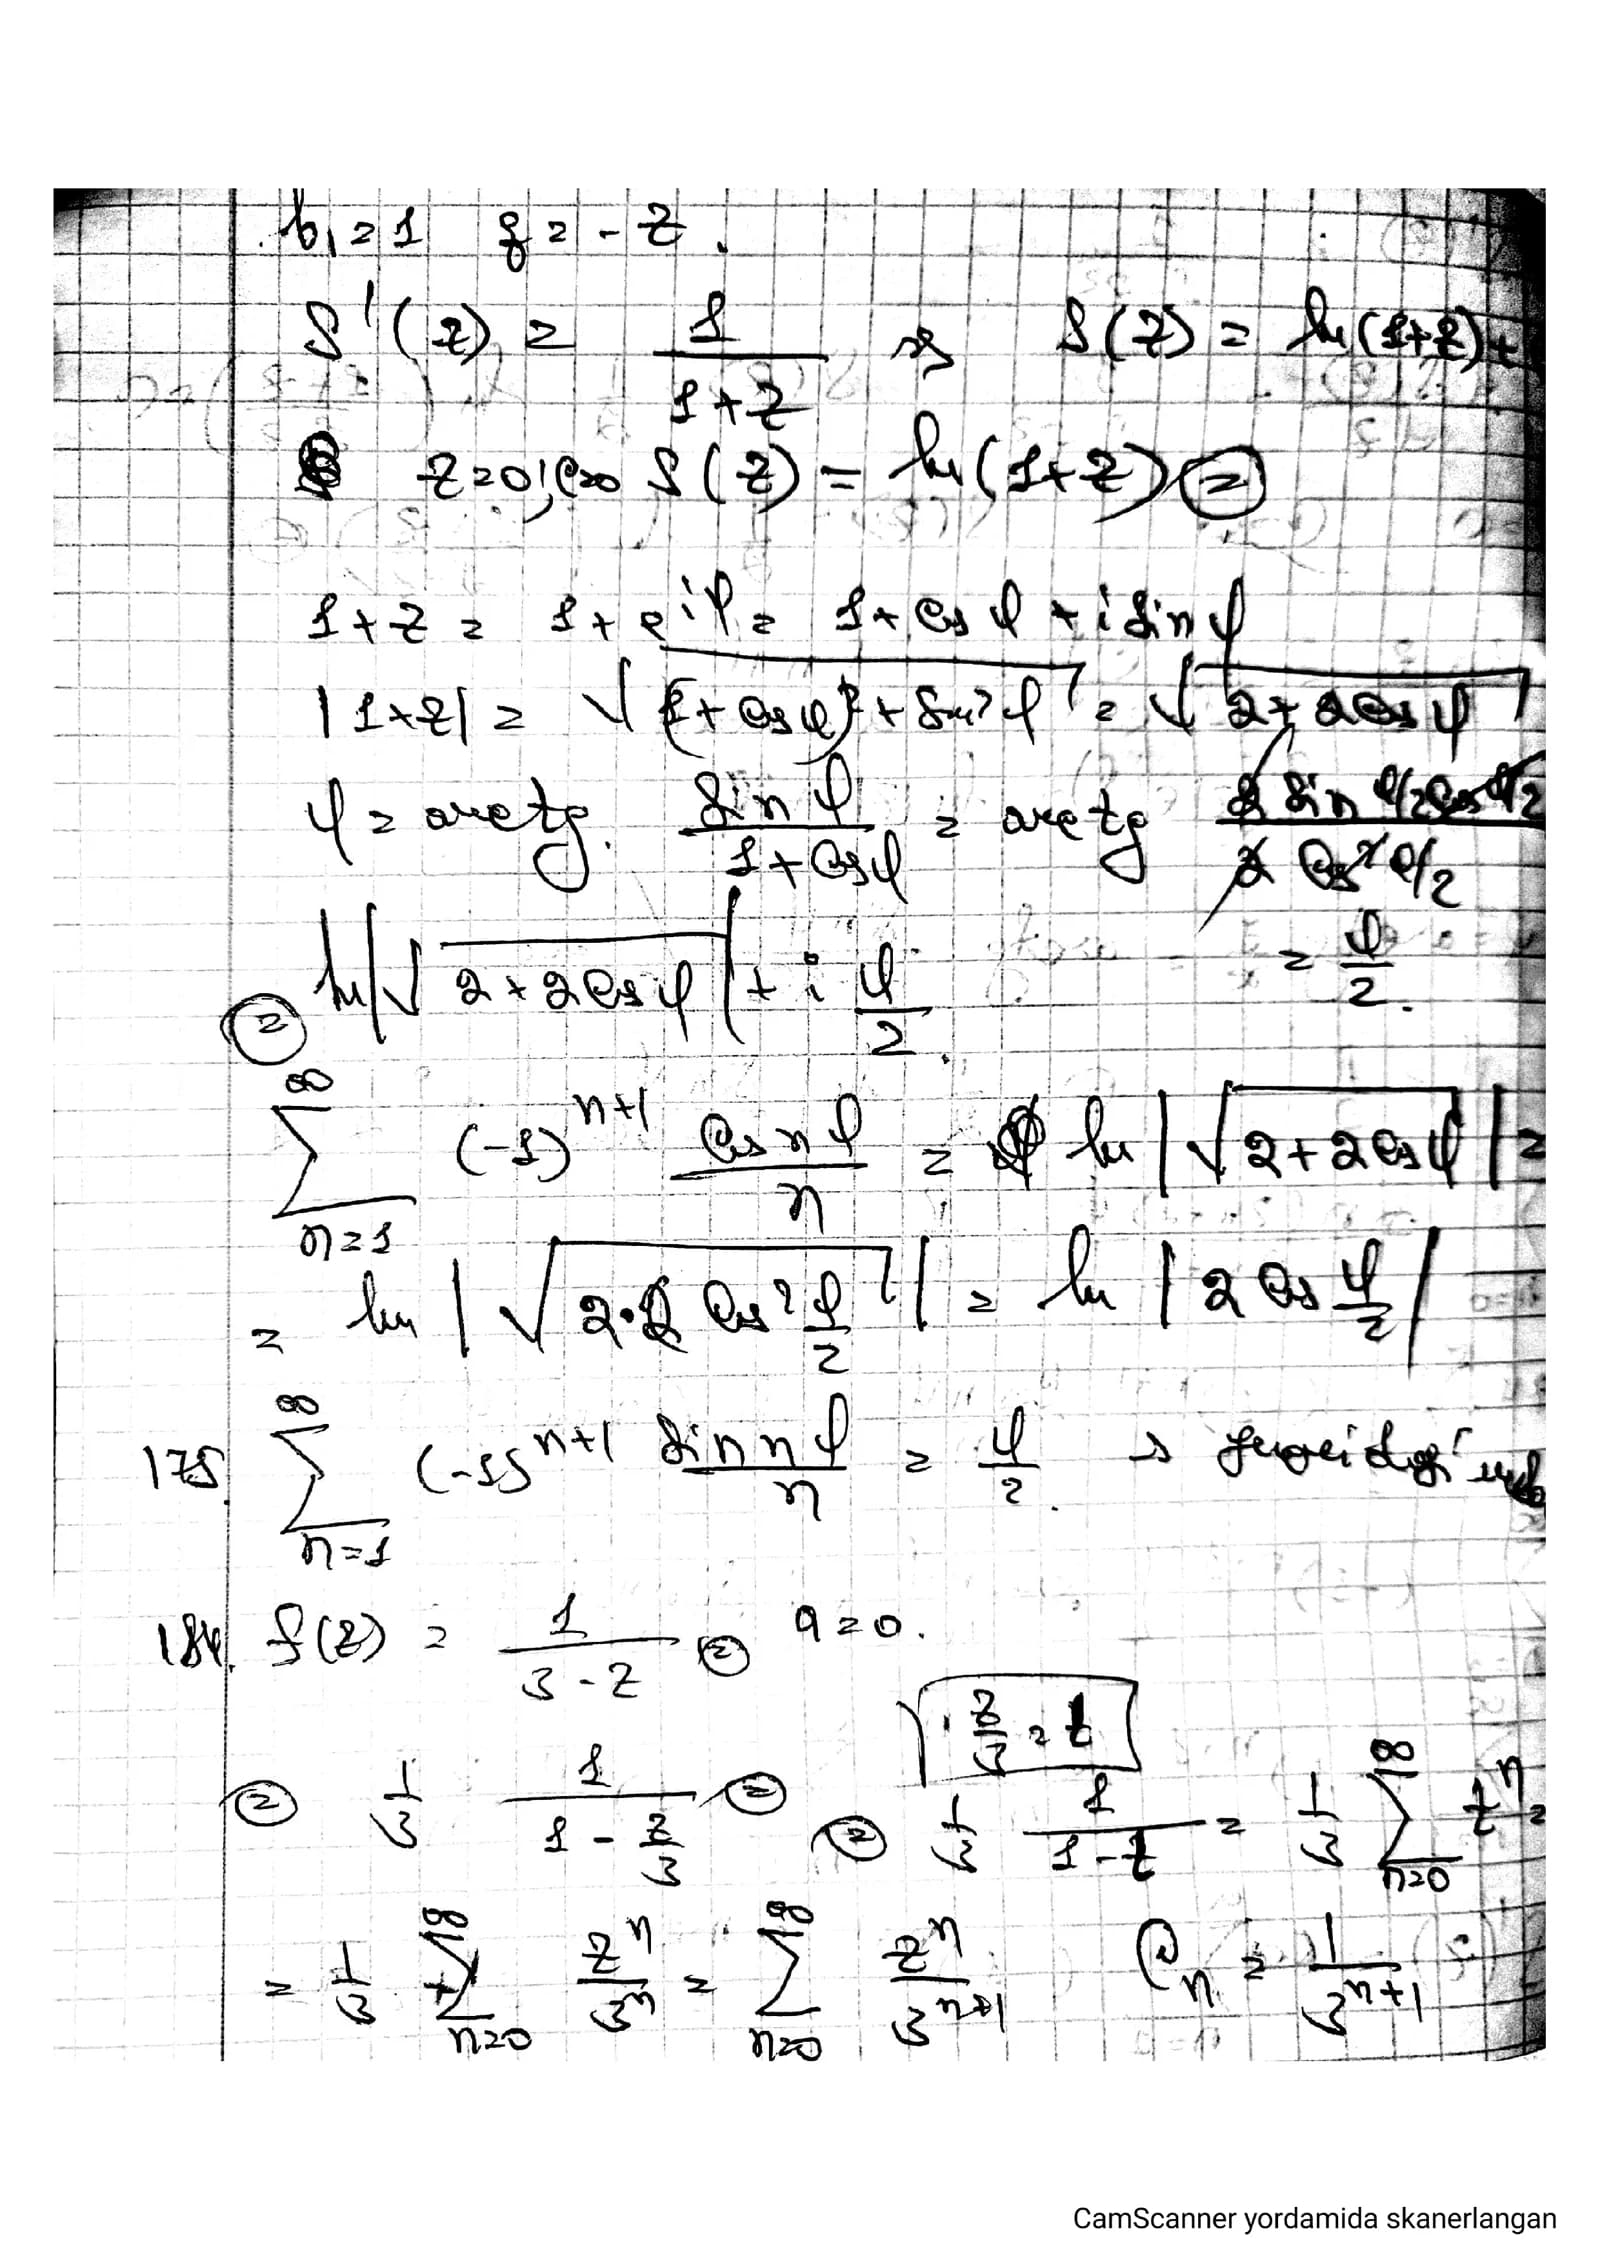 b₁=1 q=-z.
S'(z) = 1/(1+z) ⇒ S(z) = ln(1+z)+
z=0; c=0 S(z) = ln(1+z) (=)
1+z = 1+e^{iφ} = 1+cos φ + i sin φ
|1+z| = √((1+cos φ)²+sin²φ) = √(2+2cos φ)
φ = arctg sin φ/(1+cos φ) = arctg (2 sin φ/2 cos φ/2)/(2 cos² φ/2)
= φ/2.
(=) ln|√(2+2cos φ)| + i φ/2.
∑_{n=1}^{∞} (-1)^{n+1} cos nφ/n = ln|√(2+2cos φ)| =
= ln|√(2·2 cos² φ/2)| = ln|2 cos φ/2|
175. ∑_{n=1}^{∞} (-1)^{n+1} sin nφ/n = φ/2. ⇒
184. f(z) = 1/(3-z) (=) a=0.
z/3 = t
(=) 1/3 1/(1-z/3) (=) (=) 1/3 1/(1-t) = 1/3 ∑_{n=0}^{∞} t^n =
= 1/3 ∑_{n=0}^{∞} z^n/3^n = ∑_{n=0}^{∞} z^n/3^{n+1} C_n = 1/3^{n+1}
CamScanner yordamida skanerlangan